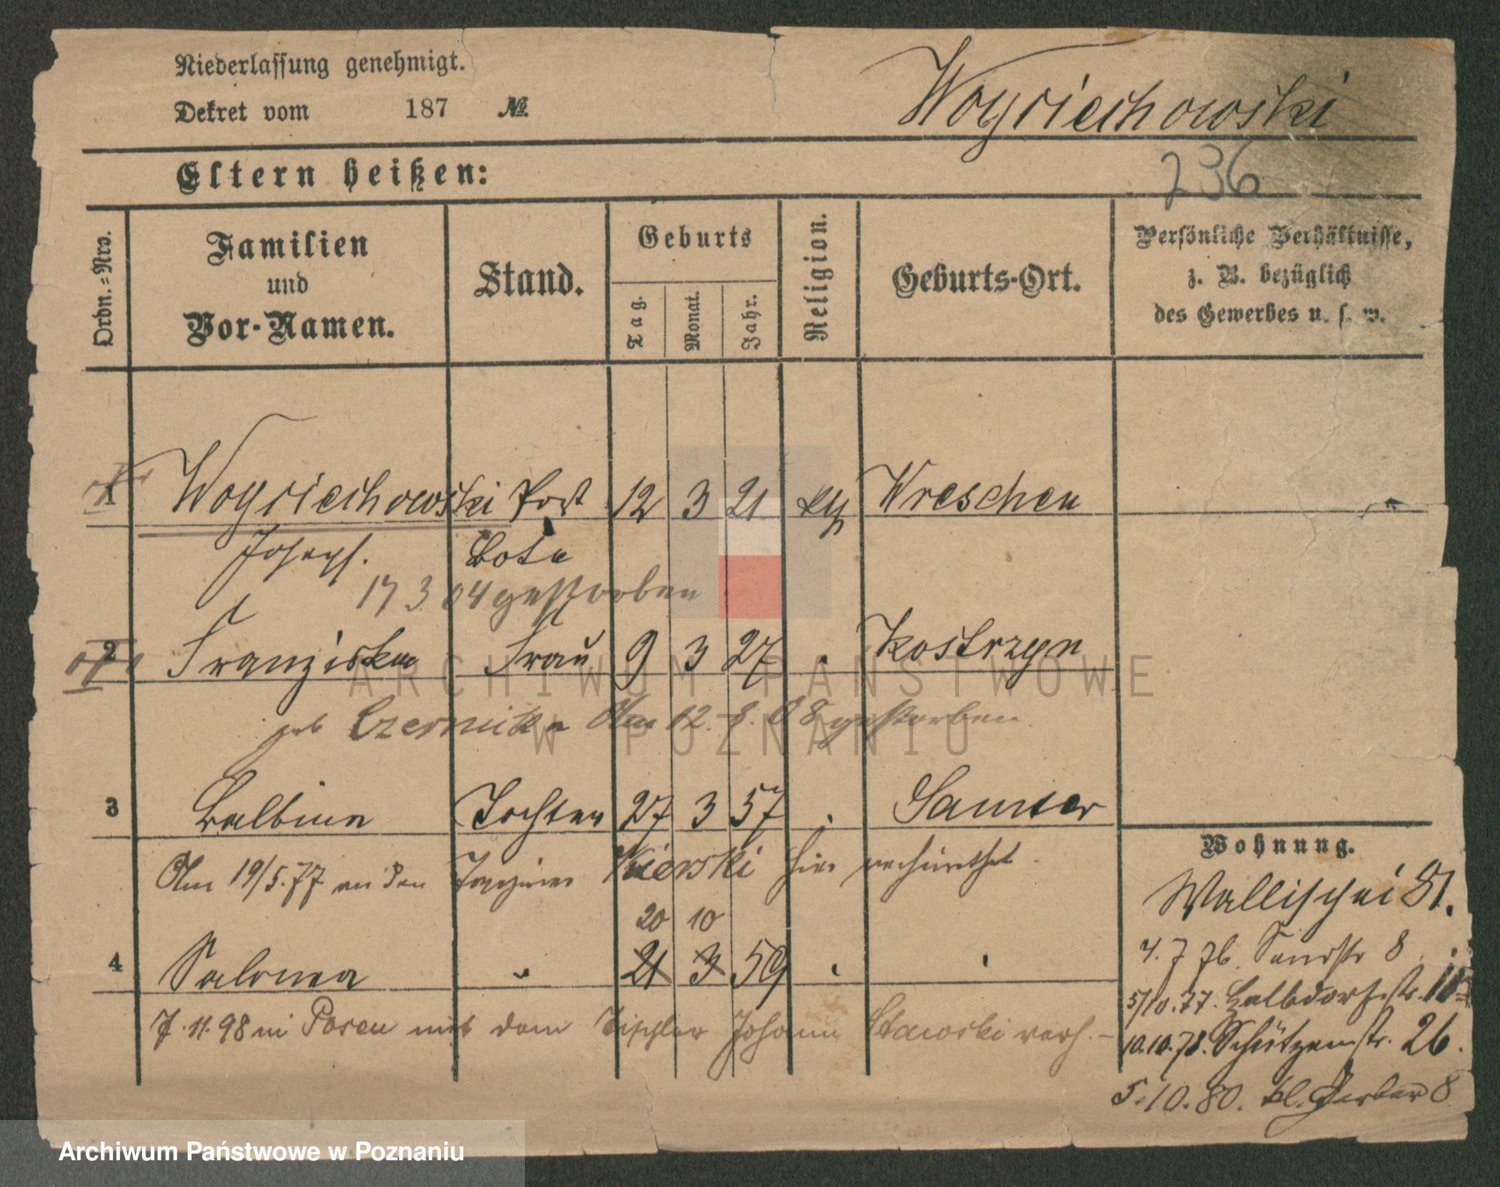 Niederlassung genehmigt.
Dekret vom 187 №
Woyciechowski
Eltern heißen:
236
Ordn.-Nro.
Familien und Vor-Namen.
Stand.
Geburts
Tag.
Monat.
Jahr.
Religion.
Geburts-Ort.
Persönliche Verhältnisse,
z. B. bezüglich
des Gewerbes u. s. w.
1 Woyciechowski Post 12 3 21 kth Wreschen
Joseph. Bote
17 3. 04 gestorben
2 Franziska Frau 9 3 27 Kostrzyn
geb Czernik Am 12. 8. 08 gestorben
3 Balbina Tochter 27 3 57 Samter
Am 19/5. 77 an den Kierski hier verheirathet.
20 10
4 Salomea " 21 3 59
7. 11. 98 in Posen mit dem Tischler Johann Stawski verh. –
Wohnung.
Wallischei 51.
4. 7 76. Sandstr 8
5/10. 77. Halbdorfstr.
10.10.78. Schützenstr. 26.
5. 10. 80. kl. Gerber 8
ARCHIWUM PAŃSTWOWE
W POZNANIU
Archiwum Państwowe w Poznaniu